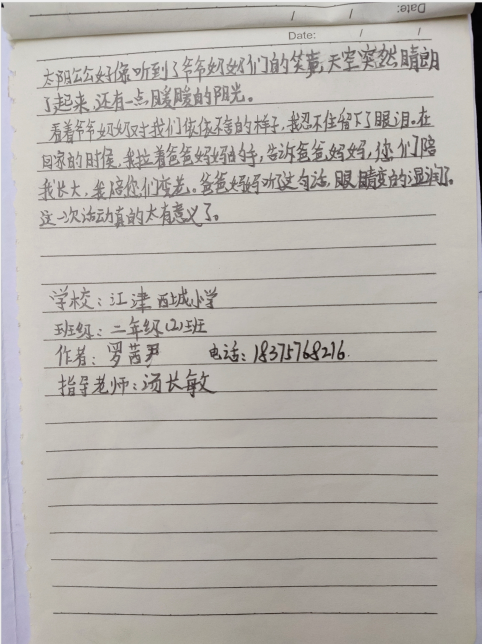 Date:
Date:
太阳公公好像听到了爷爷奶奶们的笑声,天空突然睛朗
了起来,还有一点暖暖的阳光。
看着爷爷奶奶对我们依依不舍的样子,我忍不住留下了眼泪。在
回家的时候,我拉着爸爸妈妈的手,告诉爸爸妈妈,您们陪
我长大,我陪您们变老。爸爸妈妈听这句话,眼睛变的湿润了。
这一次活动真的太有意义了。
学校:江津西城小学
班级:二年级(2)班
作者:罗茜尹 电话:18375768216.
指导老师:汤长敏